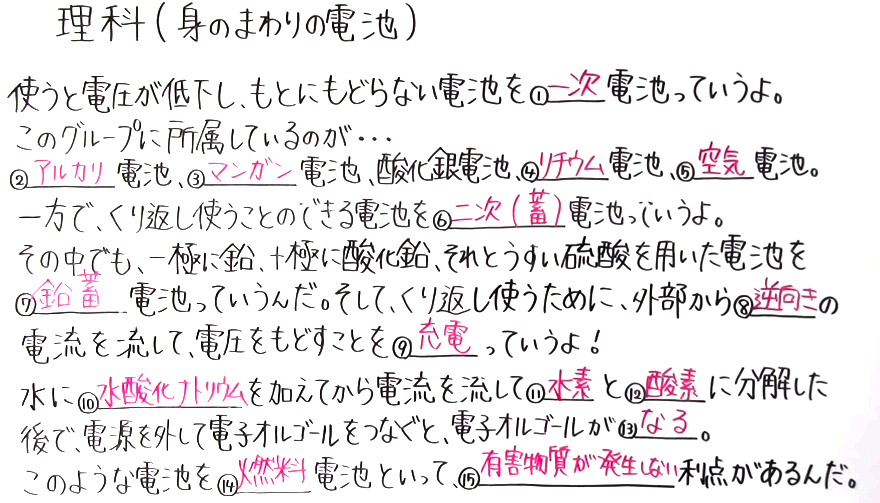 理科(身のまわりの電池)
使うと電圧が低下し、もとにもどらない電池を①一次電池っていうよ。
このグループに所属しているのが・・・
②アルカリ電池、③マンガン電池、酸化銀電池、④リチウム電池、⑤空気電池。
一方で、くり返し使うことのできる電池を⑥二次(蓄)電池っていうよ。
その中でも、－極に鉛、＋極に酸化鉛、それとうすい硫酸を用いた電池を
⑦鉛蓄電池っていうんだ。そして、くり返し使うために、外部から⑧逆向きの
電流を流して、電圧をもどすことを⑨充電っていうよ!
水に⑩水酸化ナトリウムを加えてから電流を流して⑪水素と⑫酸素に分解した
後で、電源を外して電子オルゴールをつなぐと、電子オルゴールが⑬なる。
このような電池を⑭燃料電池といって、⑮有害物質が発生しない利点があるんだ。